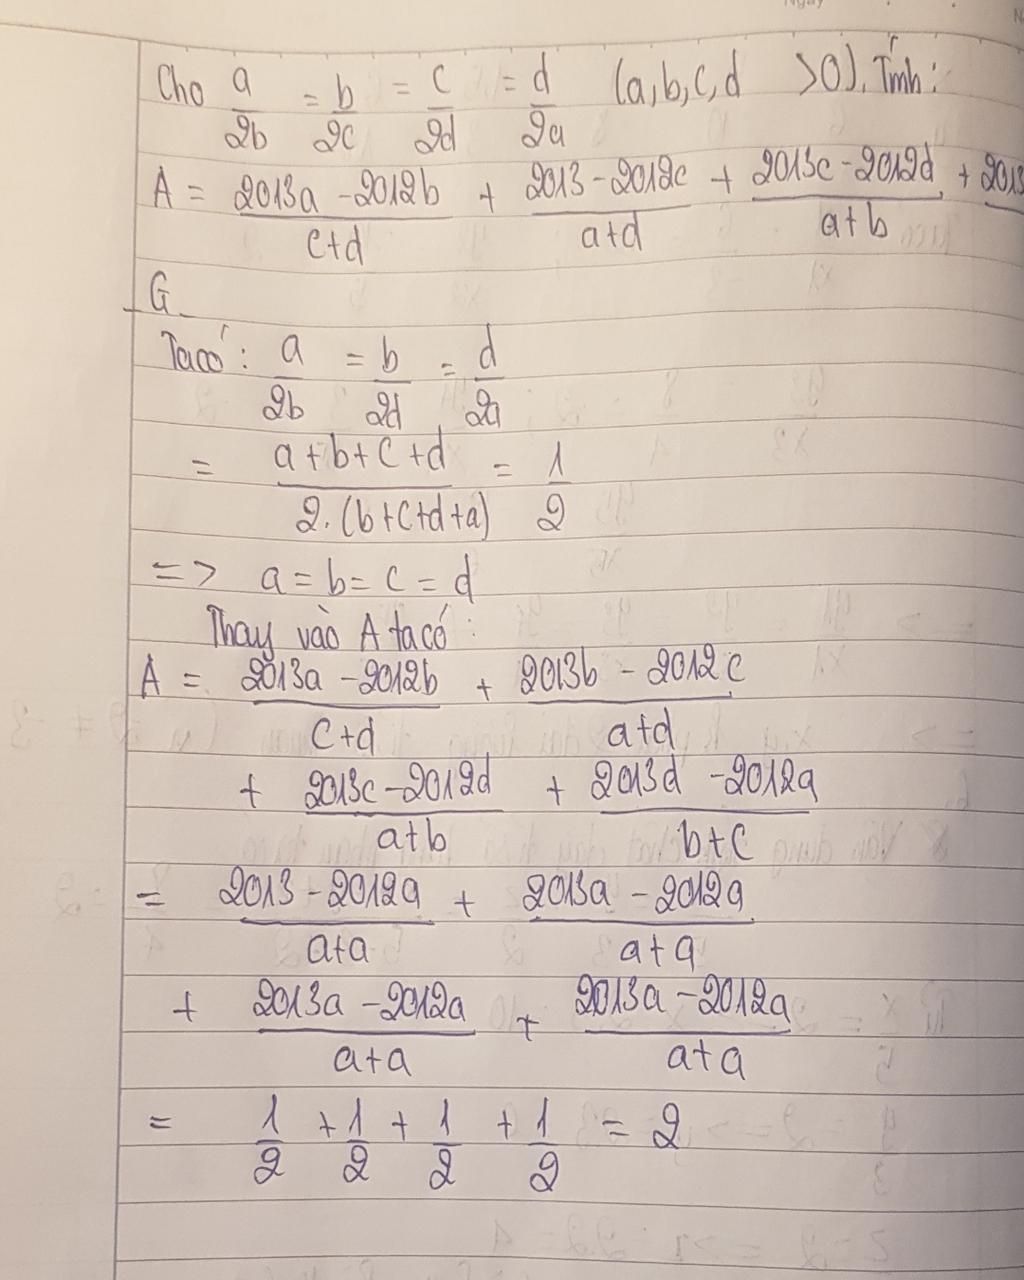 Cho a/2b = b/2c = c/2d = d/2a (a,b,c,d >0). Tính:
A = (2013a - 2012b)/(c+d) + (2013 - 2012c)/(a+d) + (2013c - 2012d)/(a+b) + 2013
G
Ta có: a/2b = b/2d = d/2a
= (a+b+c+d)/(2.(b+c+d+a)) = 1/2
=> a = b = c = d
Thay vào A ta có:
A = (2013a - 2012b)/(c+d) + (2013b - 2012c)/(a+d)
+ (2013c - 2012d)/(a+b) + (2013d - 2012a)/(b+c)
= (2013 - 2012a)/(a+a) + (2013a - 2012a)/(a+a)
+ (2013a - 2012a)/(a+a) + (2013a - 2012a)/(a+a)
= 1/2 + 1/2 + 1/2 + 1/2 = 2